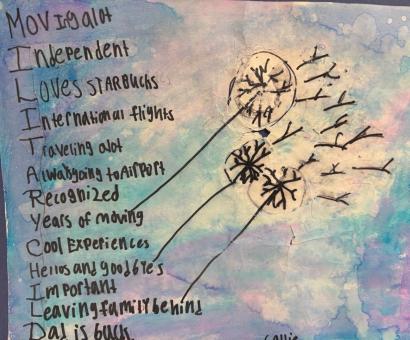 MOVINg alot
Independent
Loves STARBUCKS
International flights
Traveling alot
Alwaysgoing to AirPort
Recognized
Years of moving
Cool Experiences
Hellos and goodbyes
Important
Leaving family behind
Dad is back
19
Callie